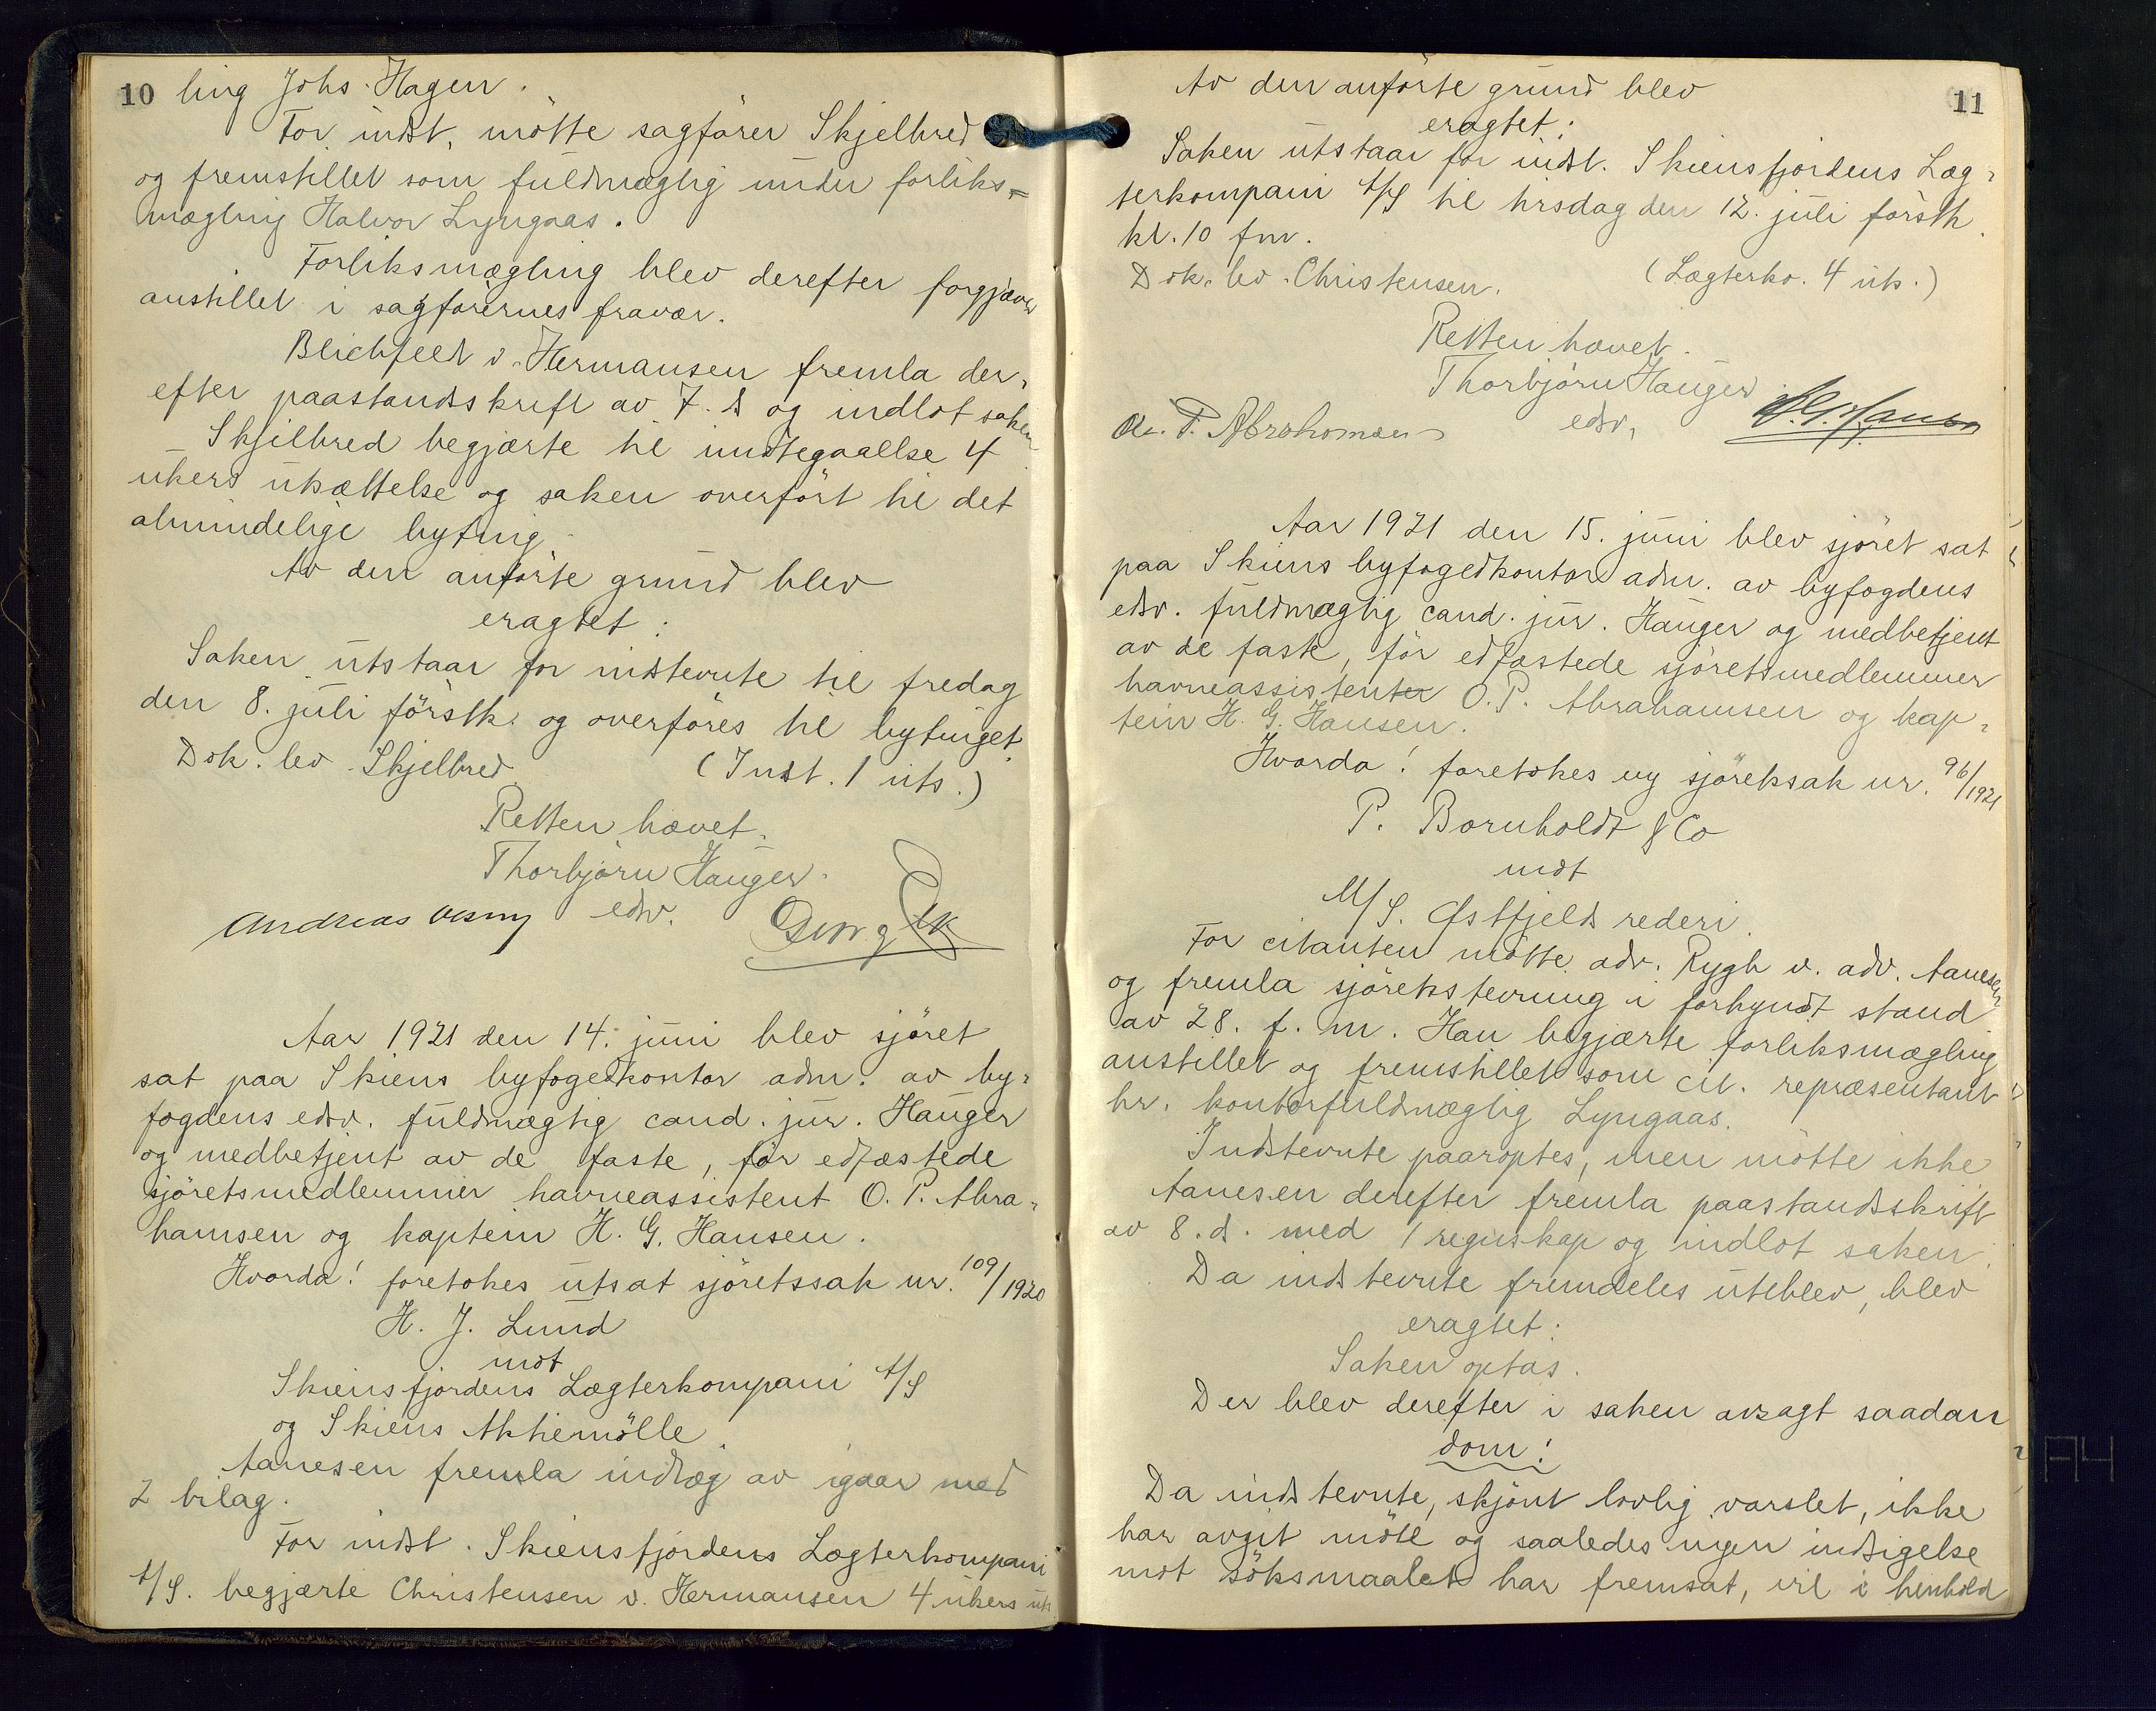 10 ling Johs. Hagen.
For indst. møtte sagfører Skjelbred
og fremstillet som fuldmægtig under forliks=
mægling Halvor Lyngaas.
Forliksmægling blev derefter forgjæves
anstillet i sagførernes fravær.
Blichfeldt v. Hermansen fremla der-
efter paastandsskrift av 7. ds og indlot saken
Skjelbred begjærte til imøtegaaelse 4
ukers utsættelse og saken overført til det
almindelige byting.
Av den anførte grund blev
eragtet:
Saken utstaar for indstevnte til fredag
den 8. juli førstk. og overføres til bytinget.
Dok. lev. Skjelbred. (Indst. 1 uts.)
Retten hævet.
Thorbjørn Hauger.
Andreas edsv. Georg
Aar 1921 den 14. juni blev sjøret
sat paa Skiens byfogedkontor adm. av by-
fogdens edsv. fuldmægtig cand. jur. Hauger
og medbetjent av de faste, før edfæstede
sjøretsmedlemmer havneassistent O. P. Abra-
hamsen og kaptein H. G. Hansen.
Hvorda! foretokes utsat sjøretssak nr. 109/1920
H. J. Lund
mot
Skiensfjordens Lægterkompani A/S
og Skiens Aktiemølle.
Aanesen fremla indlæg av igaar med
2 bilag.
For indst. Skiensfjordens Lægterkompani
A/S. begjærte Christensen v. Hermansen 4 ukers uts.
11
Av den anførte grund blev
eragtet:
Saken utstaar for indst. Skiensfjordens Læg-
terkompani A/S til tirsdag den 12. juli førstk.
kl. 10 fm.
Dok. lev. Christensen. (Lægterko. 4 uts.)
Retten hævet.
Thorbjørn Hauger
O. P. Abrahamsen edsv. H. G. Hansen
Aar 1921 den 15. juni blev sjøret sat
paa Skiens byfogedkontor adm. av byfogdens
edsv. fuldmægtig cand. jur. Hauger og medbetjent
av de faste, før edfæstede sjøretsmedlemmer
havneassistenter O. P. Abrahamsen og kap-
tein H. G. Hansen.
Hvorda! foretokes ny sjøretssak nr. 96/1921
P. Bornholdt & Co
mot
M/S. Østfjelds rederi.
For citanten møtte adv. Rygh v. adv. Aanesen
og fremla sjøretsstevning i forkyndt stand
av 28. f. m. Han begjærte forliksmægling
anstillet og fremstillet som cit. repræsentant
hr. kontorfuldmægtig Lyngaas.
Indstevnte paaroptes, men møtte ikke
Aanesen derefter fremla paastandsskrift
av 8. ds. med 1 regnskap og indlot saken.
Da indstevnte fremdeles uteblev, blev
eragtet:
Saken optas.
Der blev derefter i saken avsagt saadan
dom:
Da indstevnte, skjønt lovlig varslet, ikke
har avgit møte og saaledes ingen indsigelse
mot søksmaalet har fremsat, vil i henhold